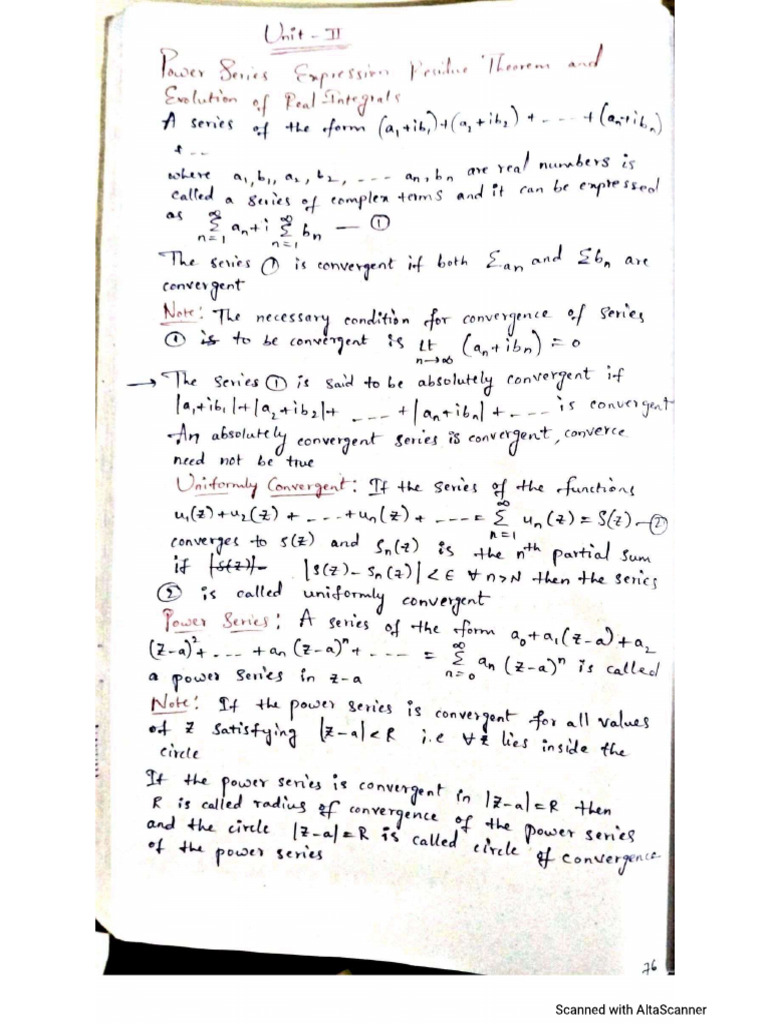 Unit - II
Power Series Expression Residue Theorem and
Evolution of Real-Integrals
A series of the form (a₁+ib₁)+(a₂+ib₂)+----+(aₙ+ibₙ)
+--
where a₁,b₁, a₂, b₂, --- aₙ, bₙ are real numbers is
called a series of complex terms and it can be expressed
as ∞Σn=1 aₙ+i ∞Σn=1 bₙ — ①
The series ① is convergent if both Σaₙ and Σbₙ are
convergent
Note: The necessary condition for convergence of series
① is to be convergent is Lt n→∞ (aₙ+ibₙ) = 0
→ The series ① is said to be absolutely convergent if
|a₁+ib₁|+|a₂+ib₂|+ ---- +|aₙ+ibₙ|+---- is convergent
An absolutely convergent series is convergent, converce
need not be true
Uniformly Convergent: If the series of the functions
u₁(z)+u₂(z)+----+uₙ(z)+----= ∞Σn=1 uₙ(z) = S(z) — ②
converges to s(z) and Sₙ(z) is the nth partial sum
if |S(z)|- |S(z)-Sₙ(z)|<ε ∀ n>N then the series
② is called uniformly convergent
Power Series: A series of the form a₀+a₁(z-a)+a₂
(z-a)²+ ---+aₙ(z-a)ⁿ+---- = ∞Σn=0 aₙ(z-a)ⁿ is called
a power series in z-a
Note: If the power series is convergent for all values
of z satisfying |z-a|<R i.e ∀ z lies inside the
circle
If the power series is convergent in |z-a|=R then
R is called radius of convergence of the power series
and the circle |z-a|=R is called circle of convergence
of the power series
76
Scanned with AltaScanner